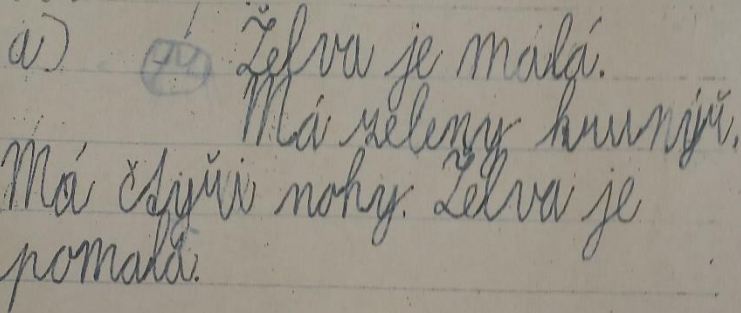 a) 74 Želva je malá.
Má zeleny krunýř.
Má čtyři nohy. Želva je
pomalá.